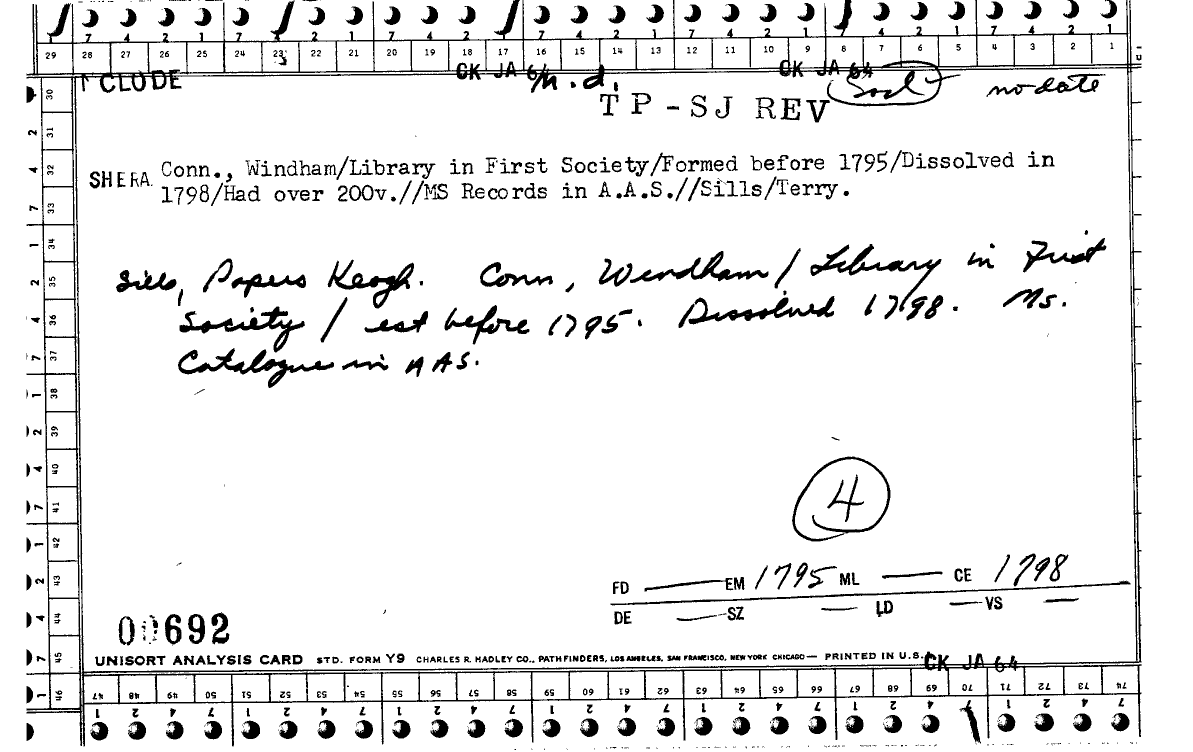 7 4 2 1 7 4 2 1 7 4 2 1 7 4 2 1 7 4 2 1 7 4 2 1 7 4 2 1
29 28 27 26 25 24 23 22 21 20 19 18 17 16 15 14 13 12 11 10 9 8 7 6 5 4 3 2 1
CLUDE CK JA 64 n.d. CK JA 64 Socl no date
TP-SJ REV
SHERA Conn., Windham/Library in First Society/Formed before 1795/Dissolved in
1798/Had over 200v.//MS Records in A.A.S.//Sills/Terry.
Sills, Papers Keogh. Conn, Windham / Library in First
Society / est before 1795. Dissolved 1798. Ms.
Catalogue in AAS.
4
FD EM 1795 ML CE 1798
DE SZ LD VS
00692
UNISORT ANALYSIS CARD STD. FORM Y9 CHARLES R. HADLEY CO., PATHFINDERS, LOS ANGELES, SAN FRANCISCO, NEW YORK CHICAGO — PRINTED IN U.S.
CK JA 64
30 31 32 33 34 35 36 37 38 39 40 41 42 43 44 45 46
47 48 49 50 51 52 53 54 55 56 57 58 59 60 61 62 63 64 65 66 67 68 69 70 71 72 73 74
1 2 4 7 1 2 4 7 1 2 4 7 1 2 4 7 1 2 4 7 1 2 4 7 1 2 4 7